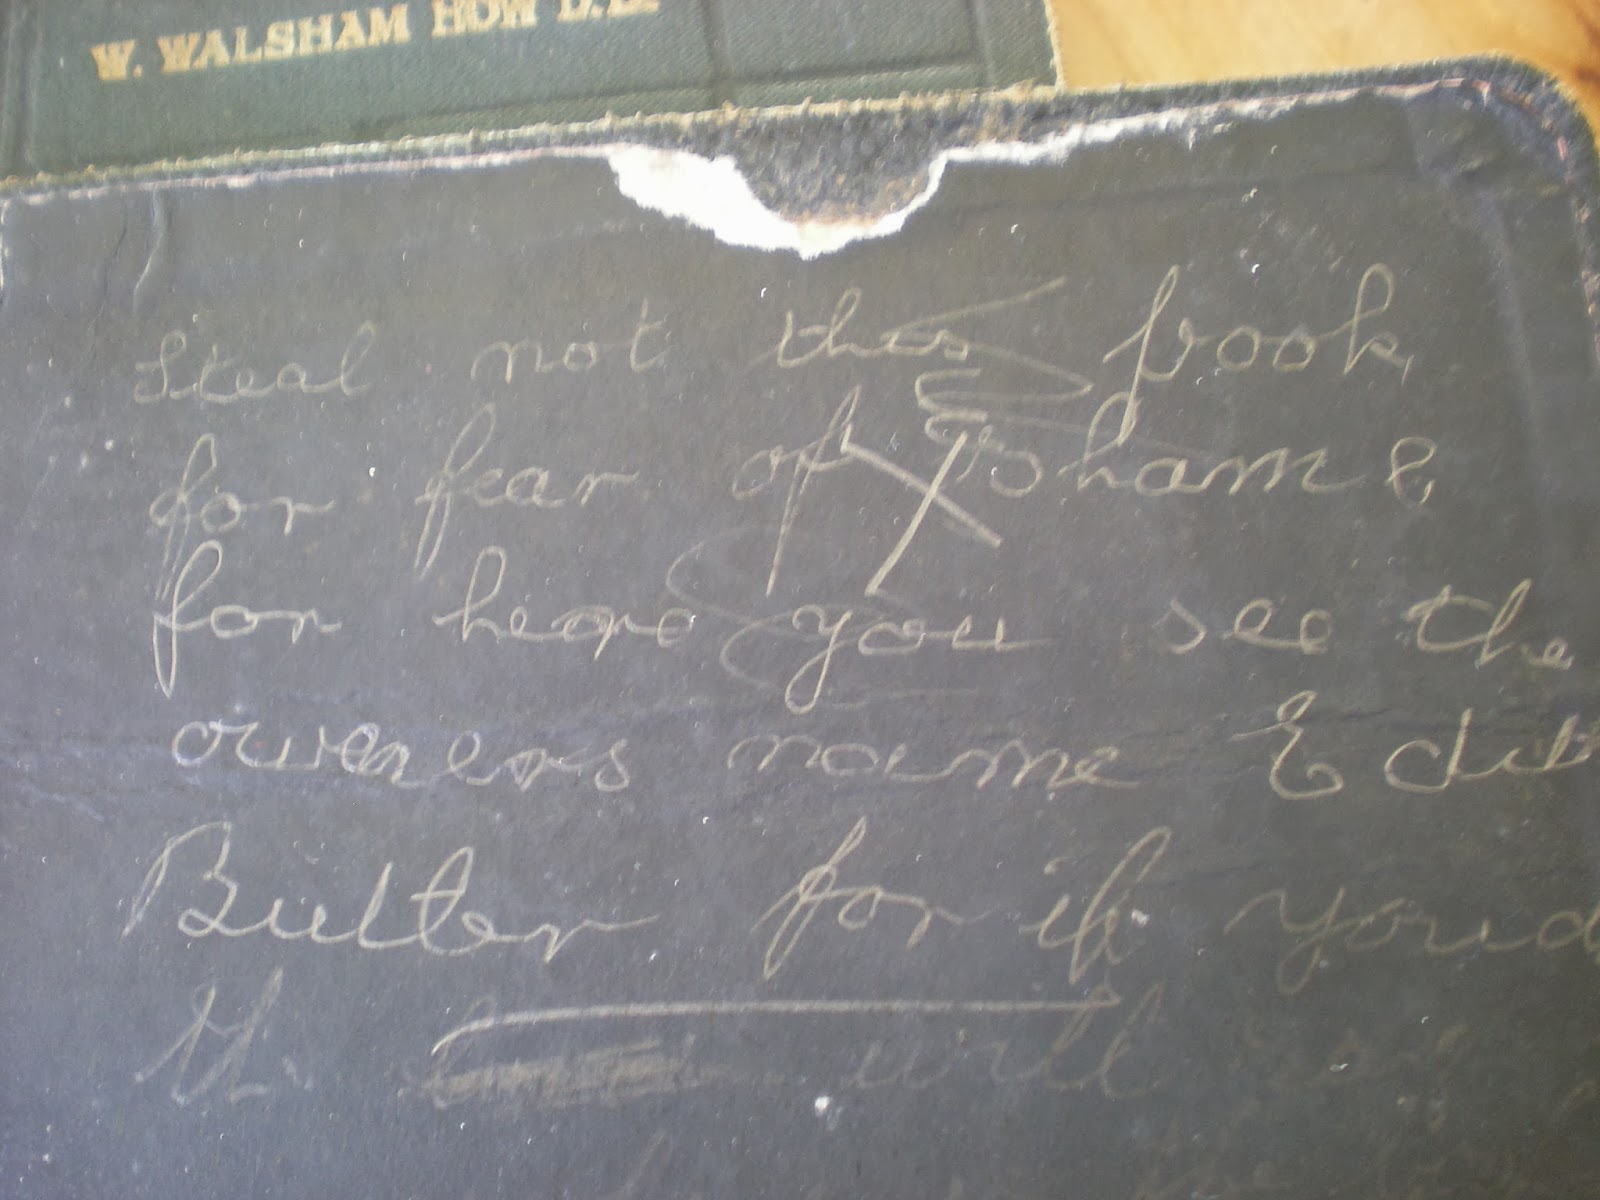 W. WALSHAM HOW D.D.
Steal not this book
for fear of shame
for here you see the
oweners name Edit
Butler for if you d
will